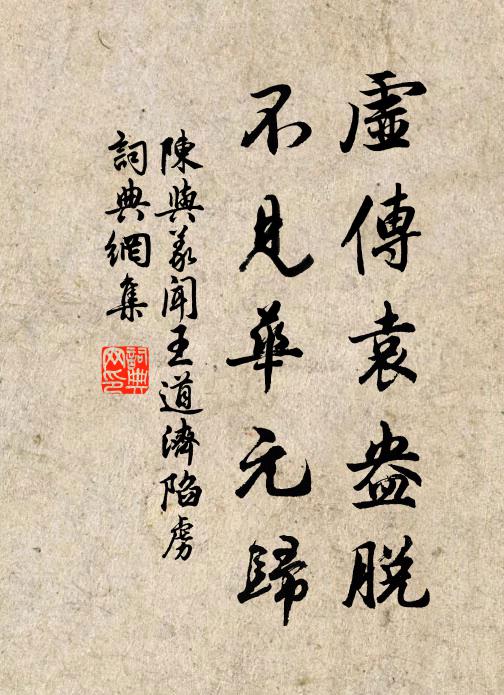 虛傳袁盎脫
不見華元歸
陳與義聞王道濟陷虜
詞典網集
詞典網印